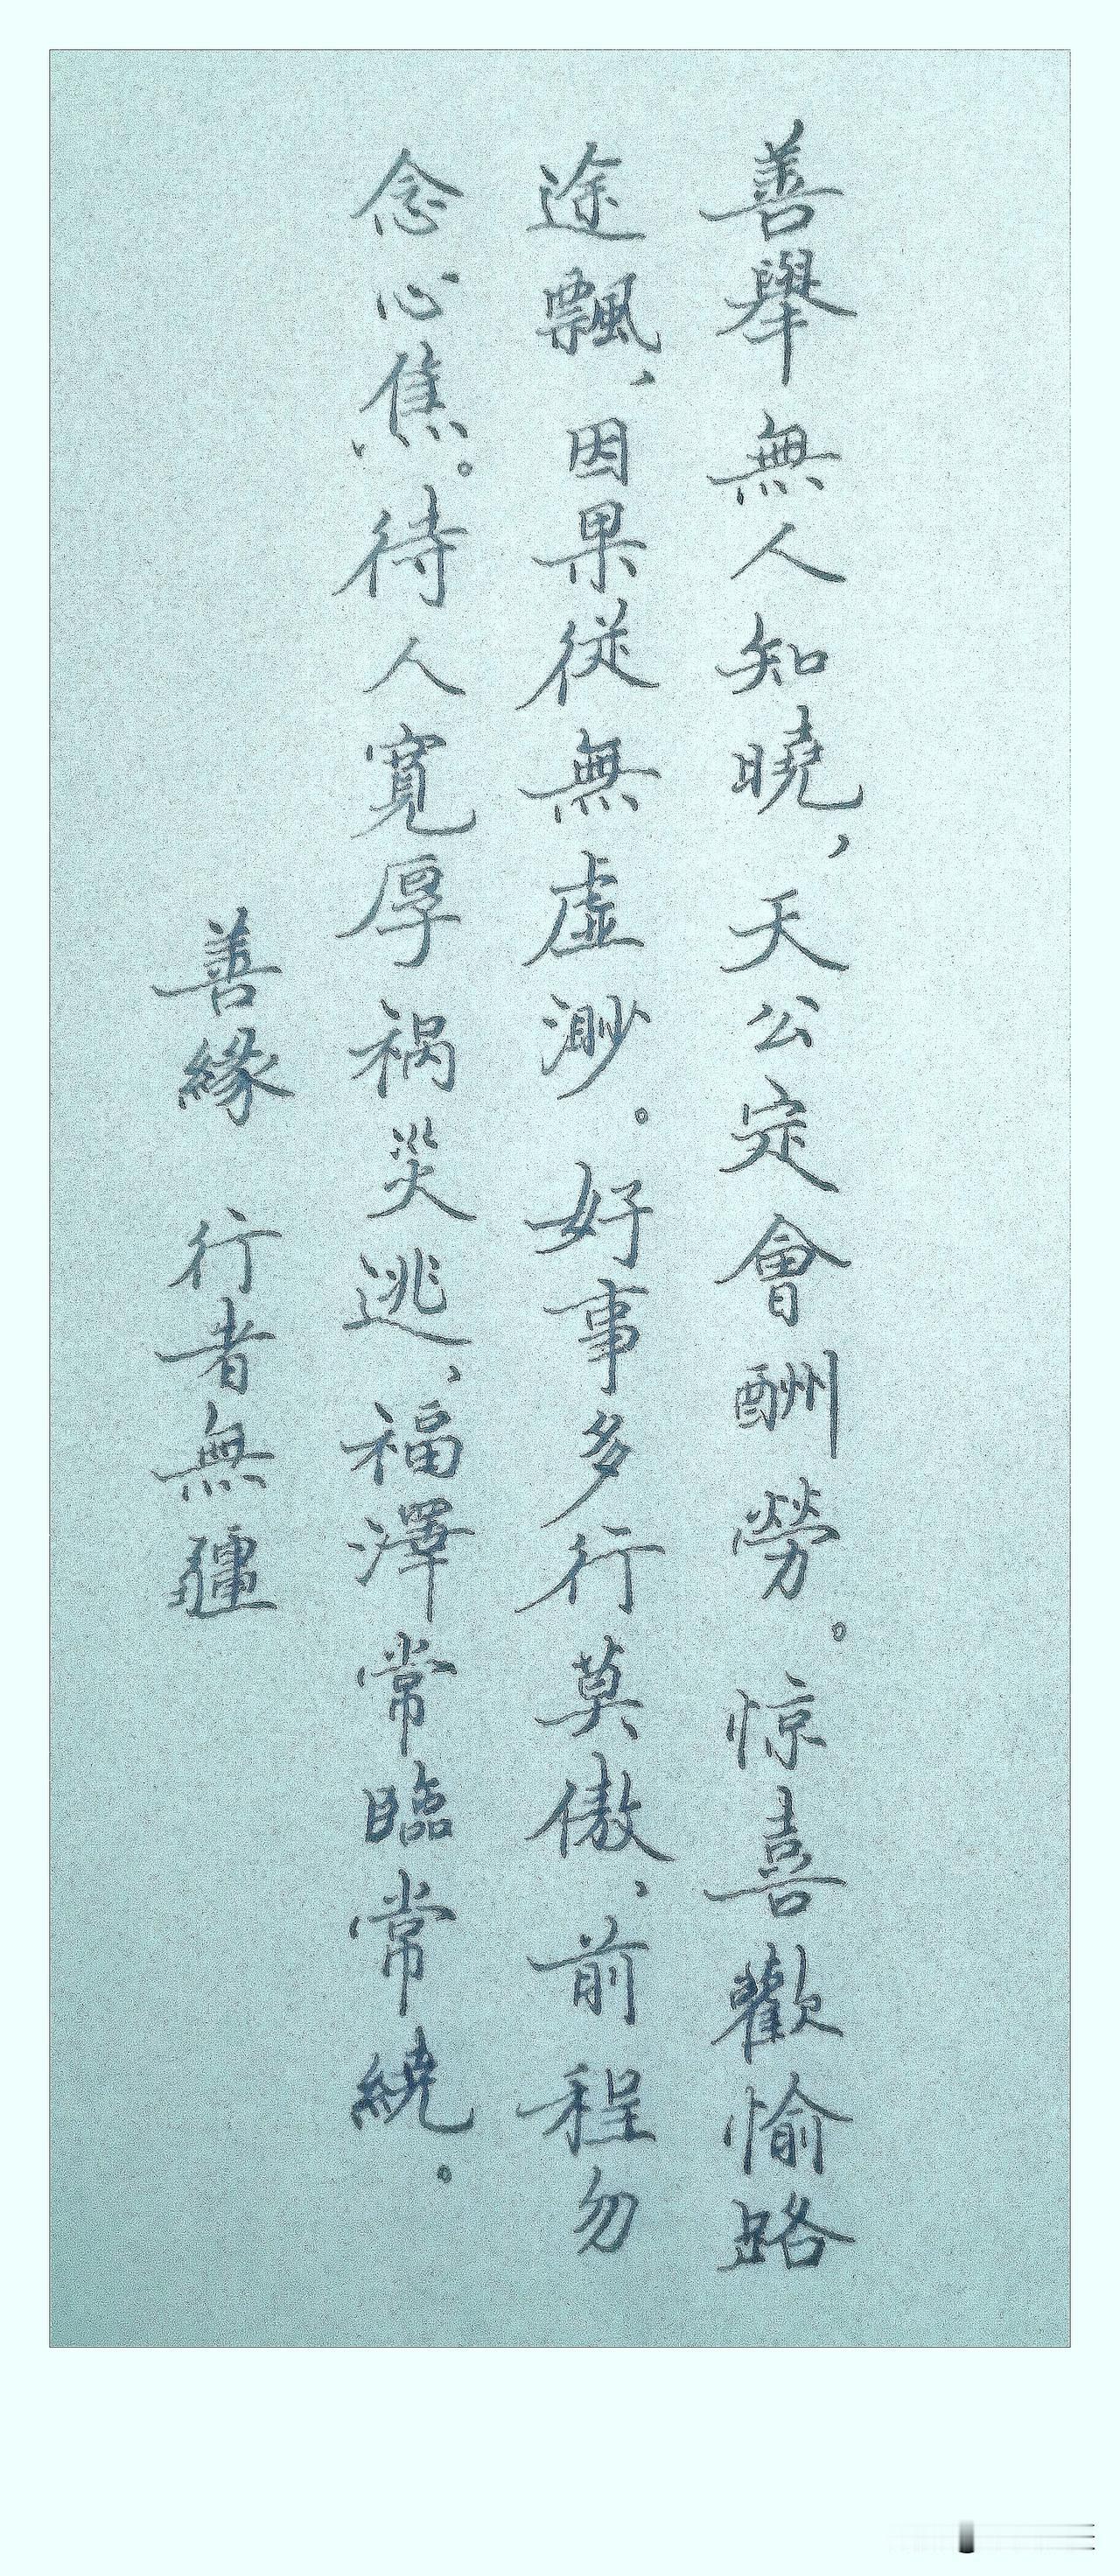 善舉無人知曉，天公定會酬勞。惊喜歡愉路
途飄，因果從無虛渺。好事多行莫傲，前程勿
念心焦。待人寬厚禍災逃，福澤常臨常繞。
善緣 行者無疆